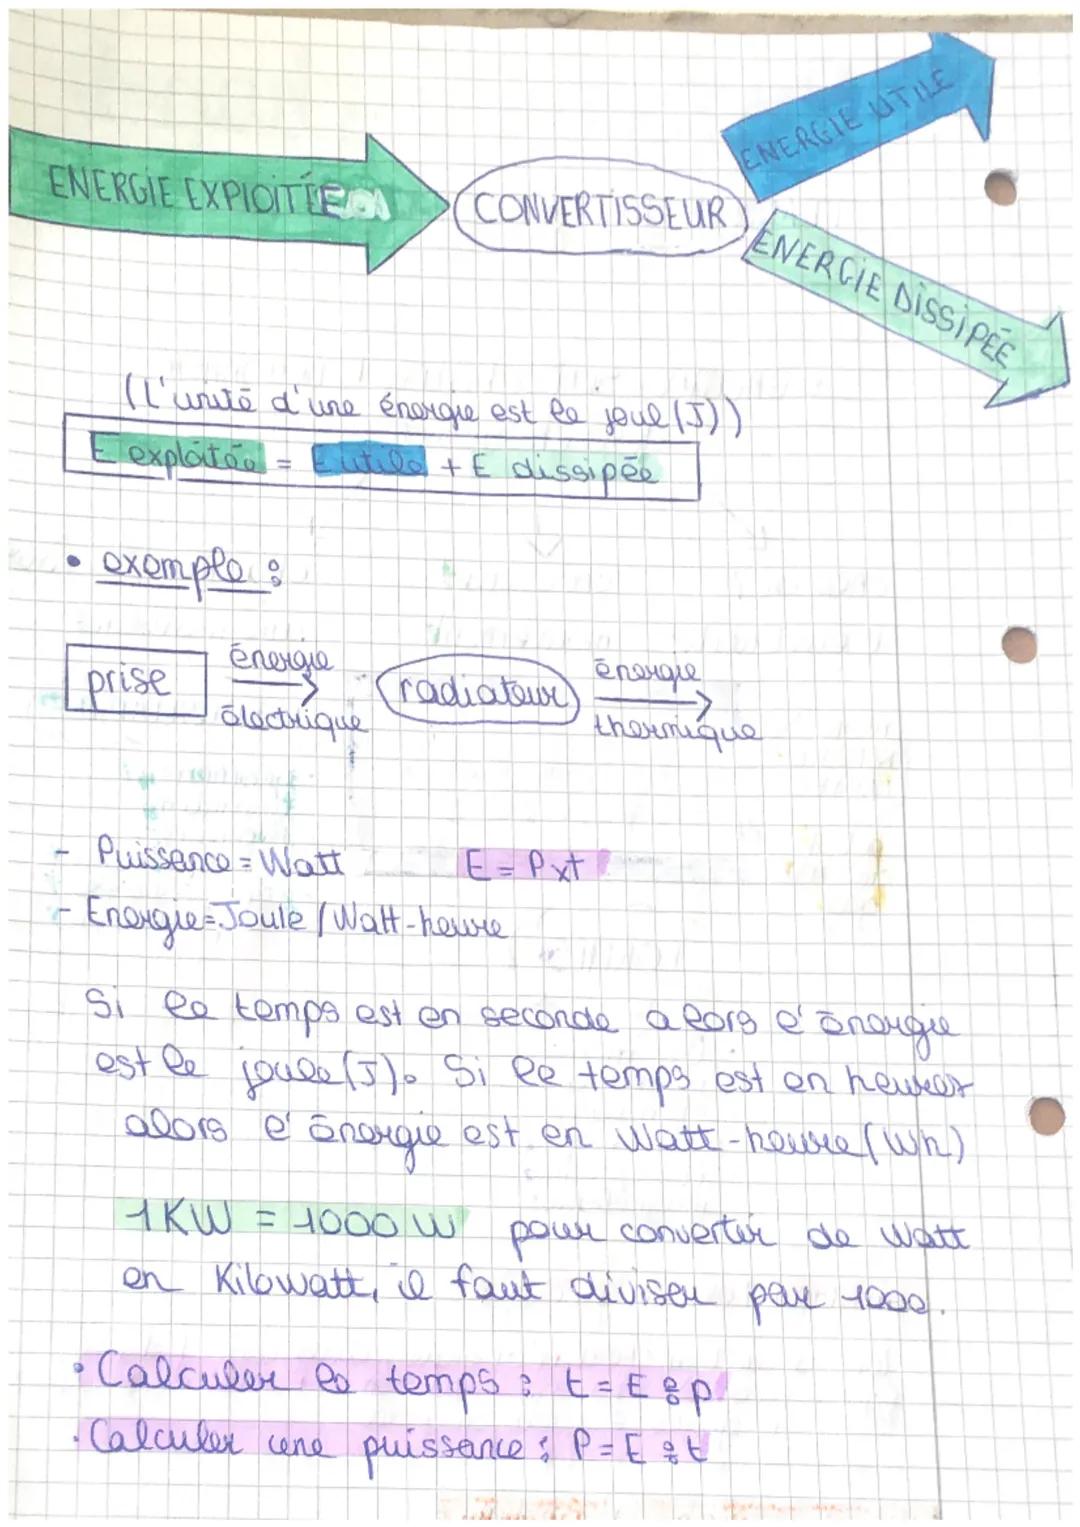 ENERGIE EXPLOITÉE
CONVERTISSEUR
ENERGIE UTILE
ENERGIE DISSIPÉE
(L'unité d'une énergie est le joul (J))
E exploitée = E utile + E dissipée
• exemple :
prise
énergie
électrique
radiateur
énergie
thermique
- Puissance = Watt E = P x t
- Energie = Joule / Watt-heure
Si le temps est en seconde alors l'énergie
est le joule (J). Si le temps est en heures
alors l'énergie est en Watt-heure (Wh)
1KW = 1000 W pour convertir de Watt
en Kilowatt, il faut diviser par 1000.
• Calculer le temps : t = E : p
• Calculer une puissance : P = E : t